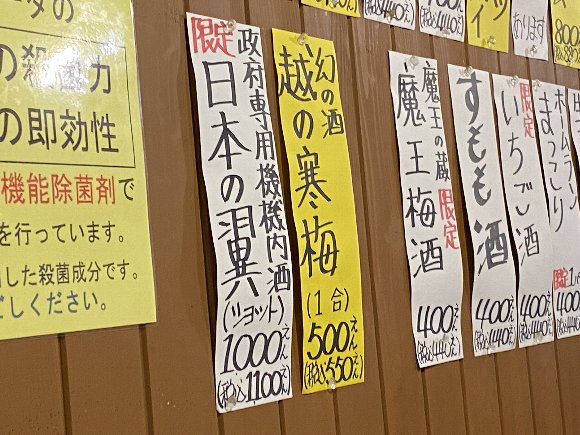 タの
の殺菌力
の即効性
機能除菌剤で
を行っています。
した殺菌成分です。
ごしください。
限定
政府専用機機内酒
日本の翼
(ショット)
1000えん
(税込1100えん)
幻の酒
越の寒梅
(1合)
500えん
(税込550えん)
魔王の蔵 限定
魔王梅酒
400えん
(税込440えん)
すもも酒
400えん
(税込440えん)
限定
いちご酒
400えん
(税込440えん)
まっこり
限定
400
あります
800